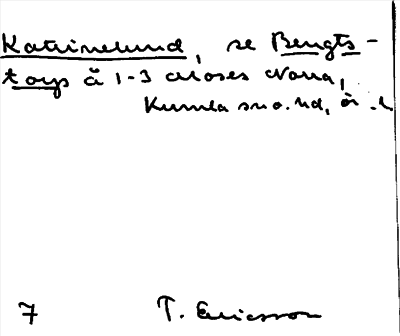 Katrinelund, se Bengts-
torp å 1-3 Moses Norra,
Kumla sn o. hd,
7 T. Ericsson